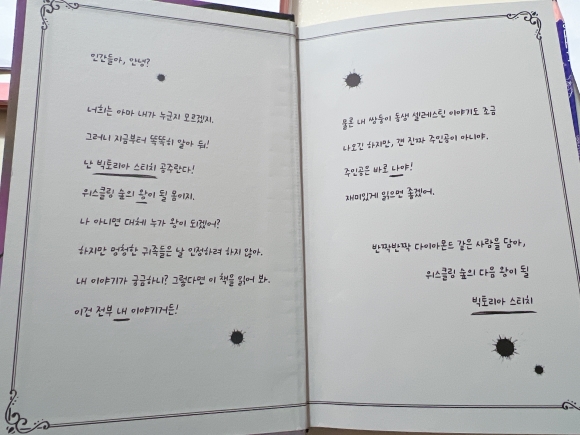 인간들아, 안녕?
너희는 아마 내가 누군지 모르겠지.
그러니 지금부터 똑똑히 알아 둬!
난 빅토리아 스티치 공주란다!
위스클링 숲의 왕이 될 몸이지.
나 아니면 대체 누가 왕이 되겠어?
하지만 멍청한 귀족들은 날 인정하려 하지 않아.
내 이야기가 궁금하니? 그렇다면 이 책을 읽어 봐.
이건 전부 내 이야기거든!
물론 내 쌍둥이 동생 셀레스틴 이야기도 조금
나오긴 하지만, 걘 진짜 주인공이 아니야.
주인공은 바로 나야!
재미있게 읽으면 좋겠어.
반짝반짝 다이아몬드 같은 사랑을 담아,
위스클링 숲의 다음 왕이 될
빅토리아 스티치